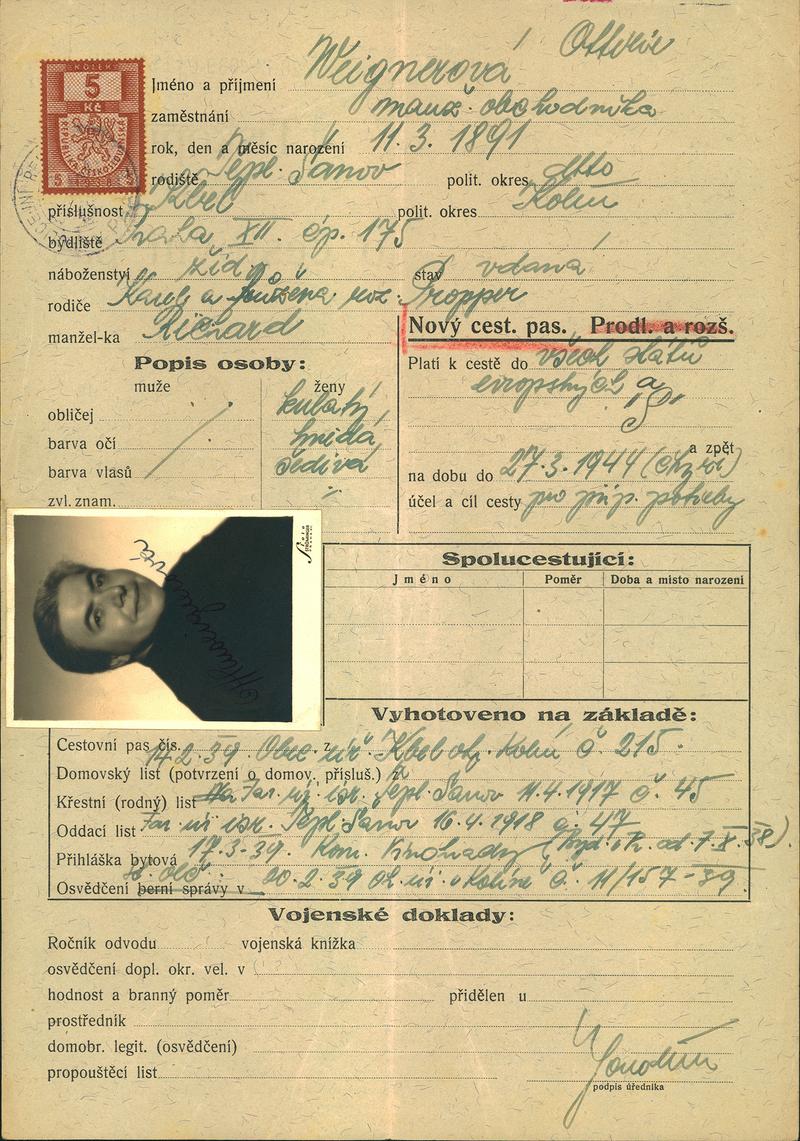 KOLEK
5
Kč
REPUBLIKA ČESKOSLOVENSKÁ
Jméno a příjmení Weignerová Ottilie
zaměstnání manž. obchodníka
rok, den a měsíc narození 11. 3. 1891
rodiště Tepl. Šanov polit. okres dtto
příslušnost Kbel polit. okres Kolín
bydliště Praha XII. čp. 175
náboženství žid. stav vdaná
rodiče Karel a Růžena roz. Propper
manžel-ka Richard
Nový cest. pas. Prodl. a rozš.
Popis osoby:
muže ženy
obličej kulatý
barva očí hnědá
barva vlasů šedivá
zvl. znam.
Platí k cestě do všech států
evropských a
a zpět
na dobu do 27. 3. 1944
účel a cíl cesty pro příp. potřeby
Spolucestující:
Jméno Poměr Doba a místo narození
Vyhotoveno na základě:
Cestovní pas čís. z
Domovský list (potvrzení o domov. přísluš.) z 14.2.39 Obec. úř. Kbel ok. Kolín č. 215.
Křestní (rodný) list Far. úř. isr. Tepl. Šanov 11.4.1917 č. 45
Oddací list Far. úř. isr. Tepl. Šanov 16.4.1918 č. 47
Přihláška bytová 17.3.39. Kom. Vinohrady
Osvědčení berní správy v 20.2.39 ok. úř. v Kolíně č. 11/157-39
Vojenské doklady:
Ročník odvodu vojenská knížka
osvědčení dopl. okr. vel. v
hodnost a branný poměr přidělen u
prostředník
domobr. legit. (osvědčení)
propouštěcí list
podpis úředníka